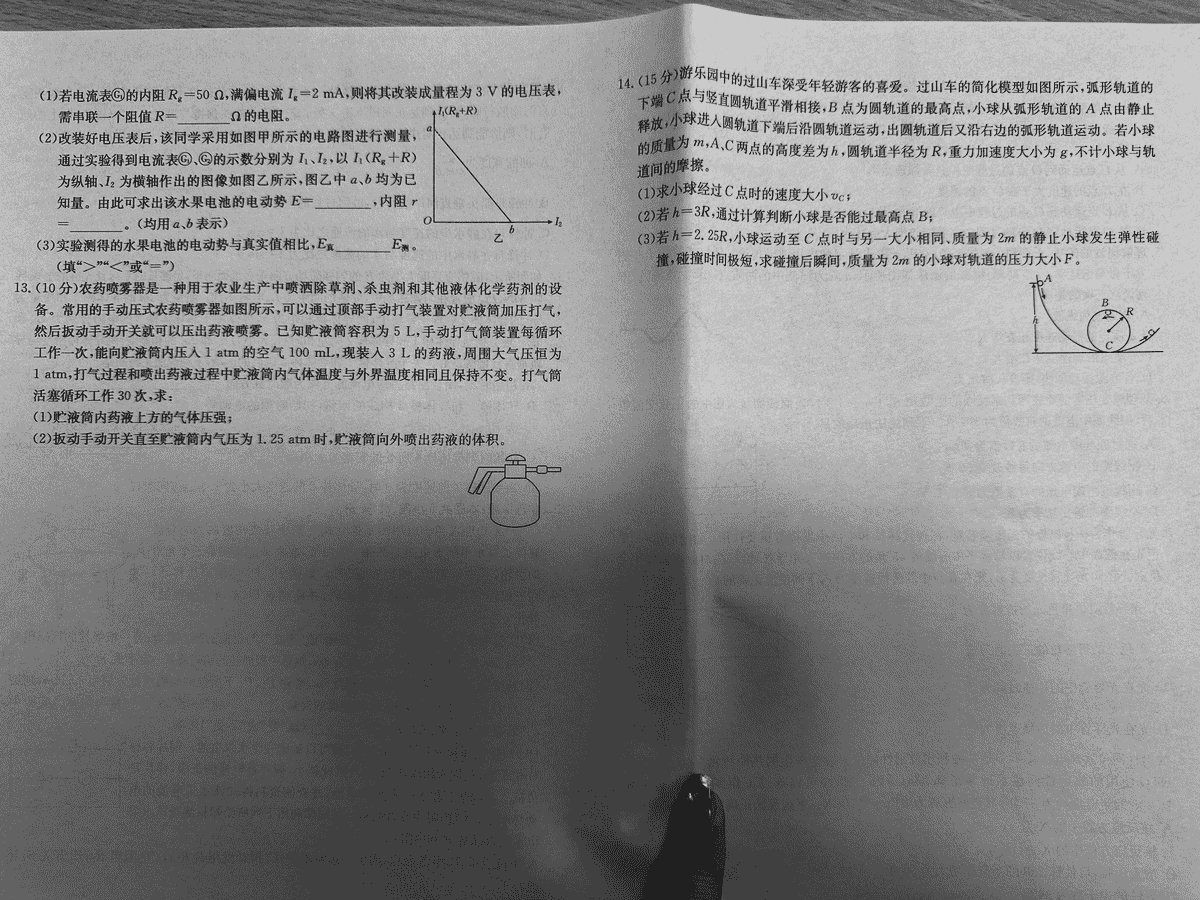 (1)若电流表G₁的内阻 Rg=50 Ω,满偏电流 Ig=2 mA,则将其改装成量程为 3 V 的电压表,
需串联一个阻值 R=______Ω 的电阻。
(2)改装好电压表后,该同学采用如图甲所示的电路图进行测量,
通过实验得到电流表G₁、G₂的示数分别为 I₁、I₂,以 I₁(Rg+R)
为纵轴、I₂ 为横轴作出的图像如图乙所示,图乙中 a、b 均为已
知量。由此可求出该水果电池的电动势 E=______,内阻 r
=______。(均用 a、b 表示)
(3)实验测得的水果电池的电动势与真实值相比,E真______E测。
(填“>”“<”或“=”)
I₁(Rg+R)
a
O
b
I₂
乙
13.(10 分)农药喷雾器是一种用于农业生产中喷洒除草剂、杀虫剂和其他液体化学药剂的设
备。常用的手动压式农药喷雾器如图所示,可以通过顶部手动打气装置对贮液筒加压打气,
然后扳动手动开关就可以压出药液喷雾。已知贮液筒容积为 5 L,手动打气筒装置每循环
工作一次,能向贮液筒内压入 1 atm 的空气 100 mL,现装入 3 L 的药液,周围大气压恒为
1 atm,打气过程和喷出药液过程中贮液筒内气体温度与外界温度相同且保持不变。打气筒
活塞循环工作 30 次,求:
(1)贮液筒内药液上方的气体压强;
(2)扳动手动开关直至贮液筒内气压为 1.25 atm 时,贮液筒向外喷出药液的体积。
14.(15 分)游乐园中的过山车深受年轻游客的喜爱。过山车的简化模型如图所示,弧形轨道的
下端 C 点与竖直圆轨道平滑相接,B 点为圆轨道的最高点,小球从弧形轨道的 A 点由静止
释放,小球进入圆轨道下端后沿圆轨道运动,出圆轨道后又沿右边的弧形轨道运动。若小球
的质量为 m,A、C 两点的高度差为 h,圆轨道半径为 R,重力加速度大小为 g,不计小球与轨
道间的摩擦。
(1)求小球经过 C 点时的速度大小 vC;
(2)若 h=3R,通过计算判断小球是否能过最高点 B;
(3)若 h=2.25R,小球运动至 C 点时与另一大小相同、质量为 2m 的静止小球发生弹性碰
撞,碰撞时间极短,求碰撞后瞬间,质量为 2m 的小球对轨道的压力大小 F。
A
h
B
R
C